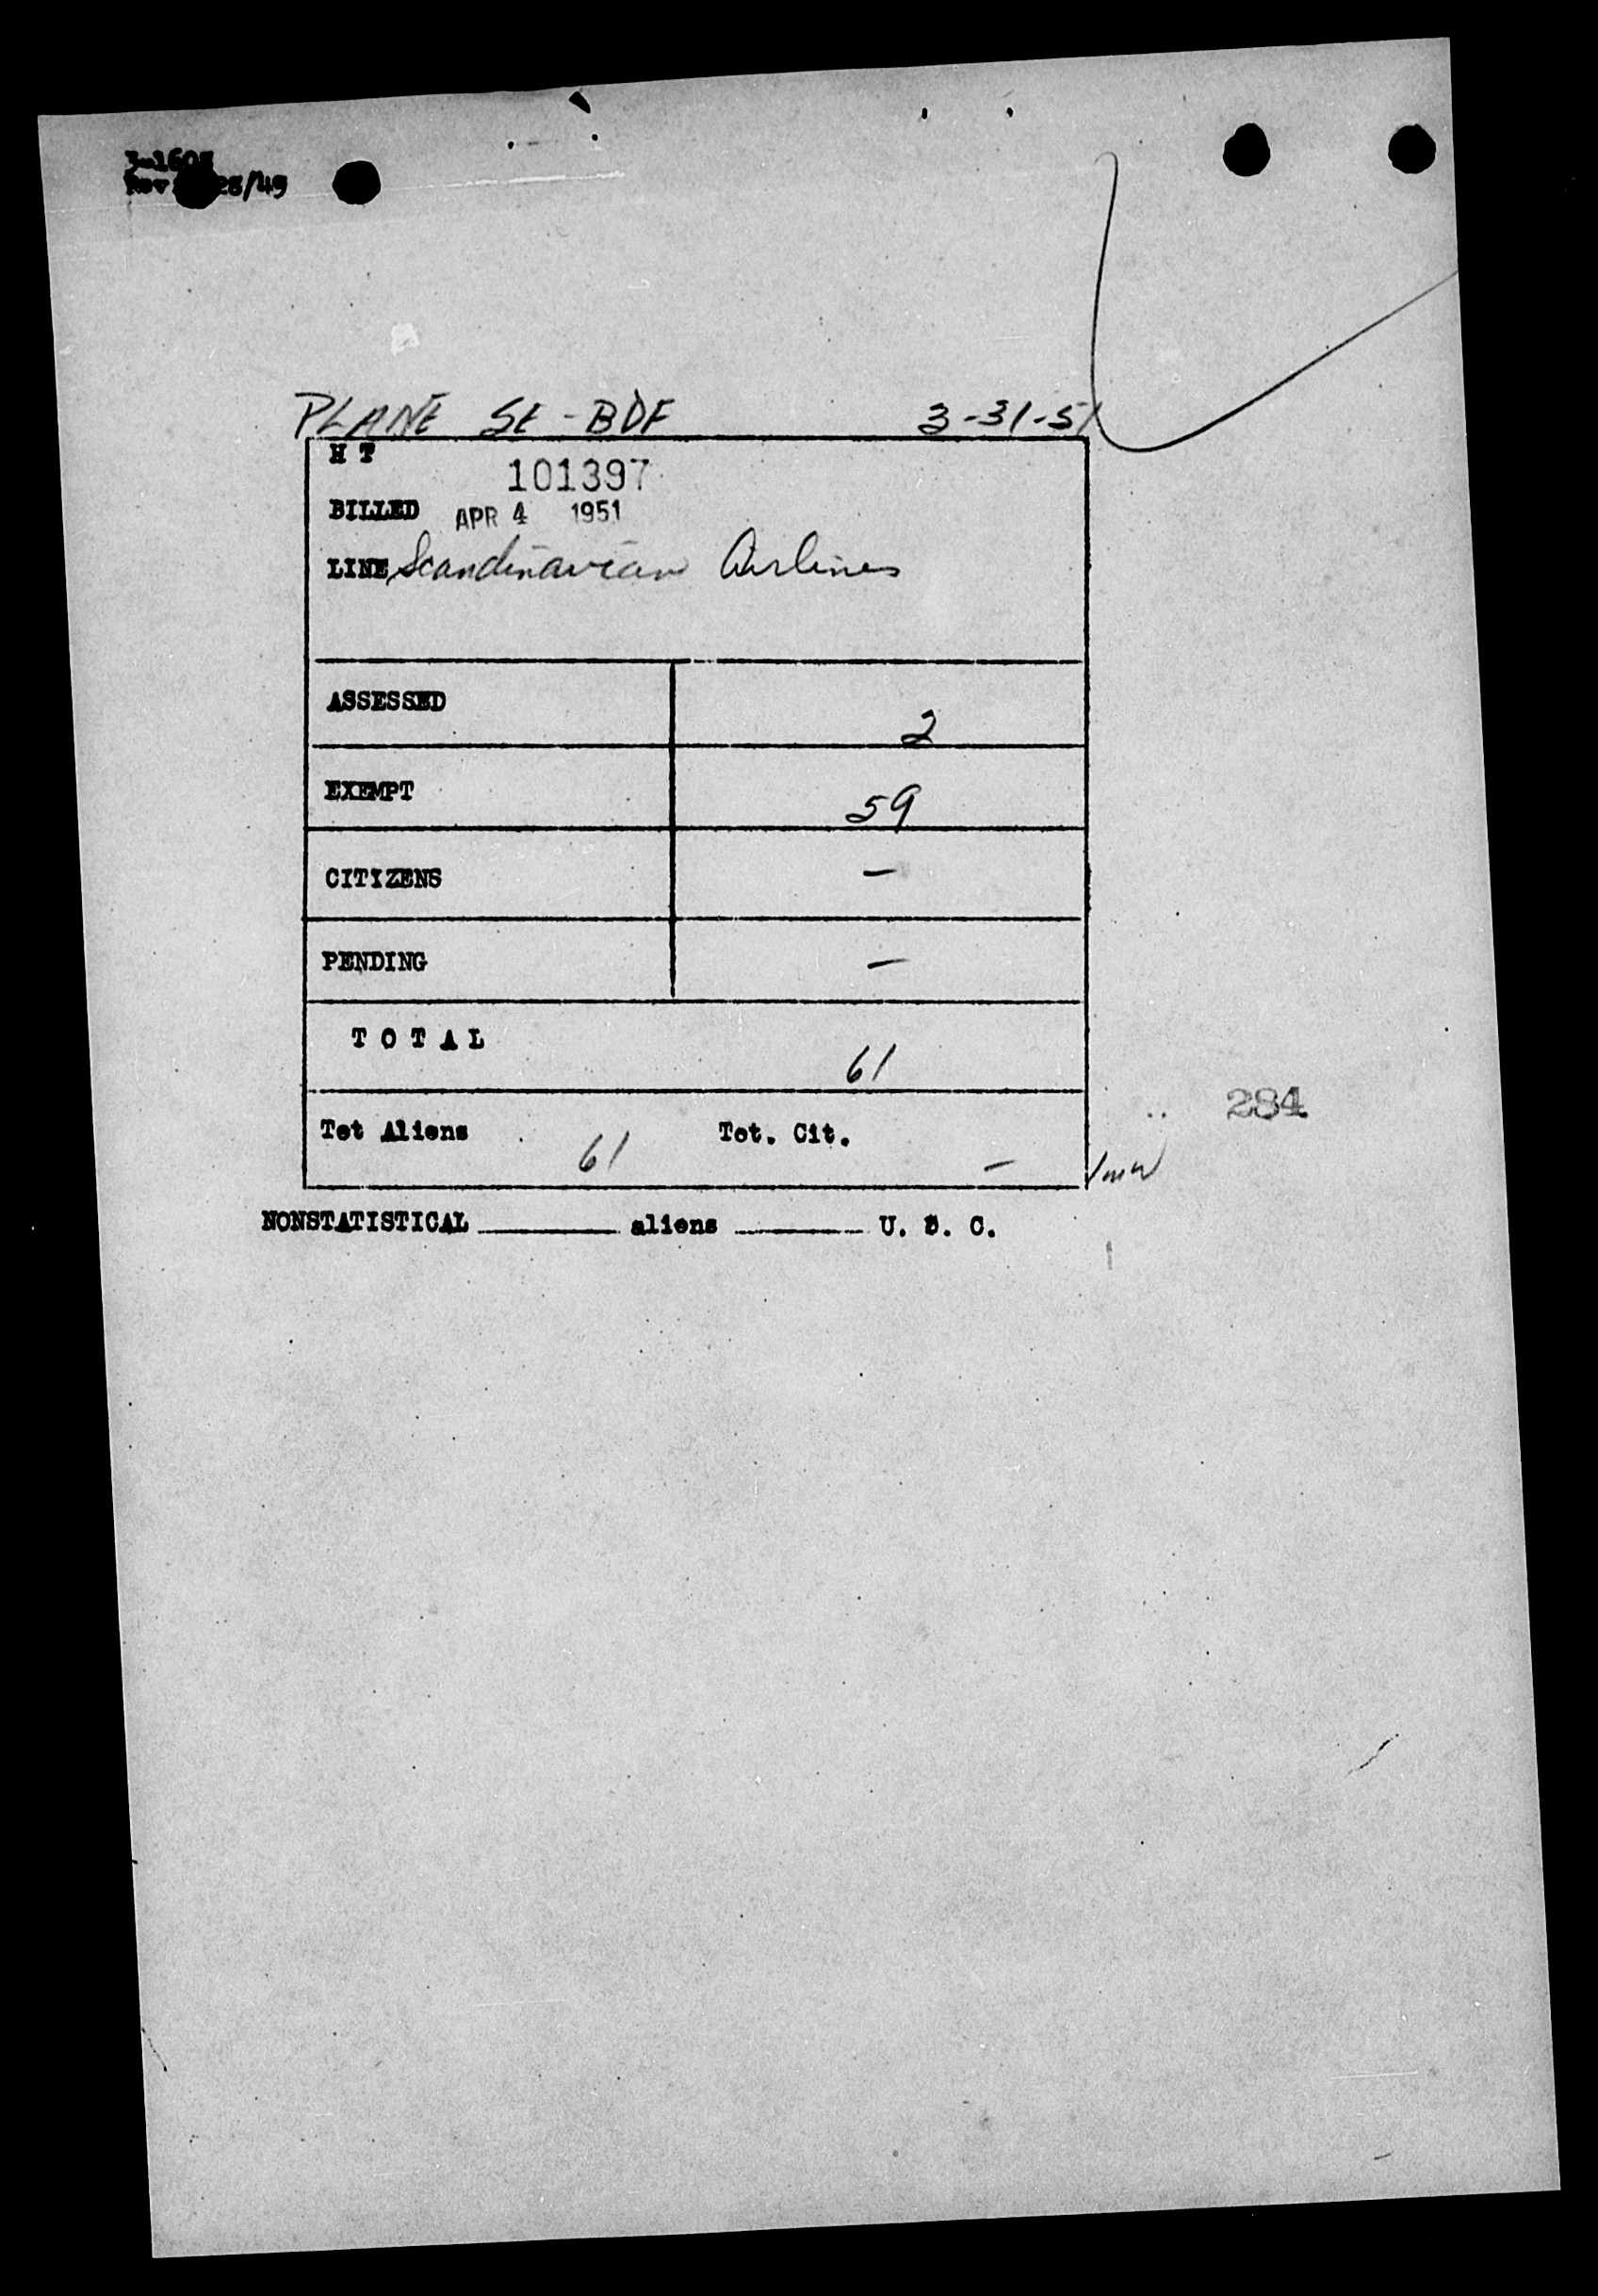 3-1603
Rev. 28/49
PLANE SE-BDF 3-31-51
H T 101397
BILLED APR 4 1951
LINE Scandinavian Airlines
ASSESSED 2
EXEMPT 59
CITIZENS —
PENDING —
T O T A L 61
284
Tot Aliens 61 Tot. Cit. —
NONSTATISTICAL ______ aliens ______ U. S. C.